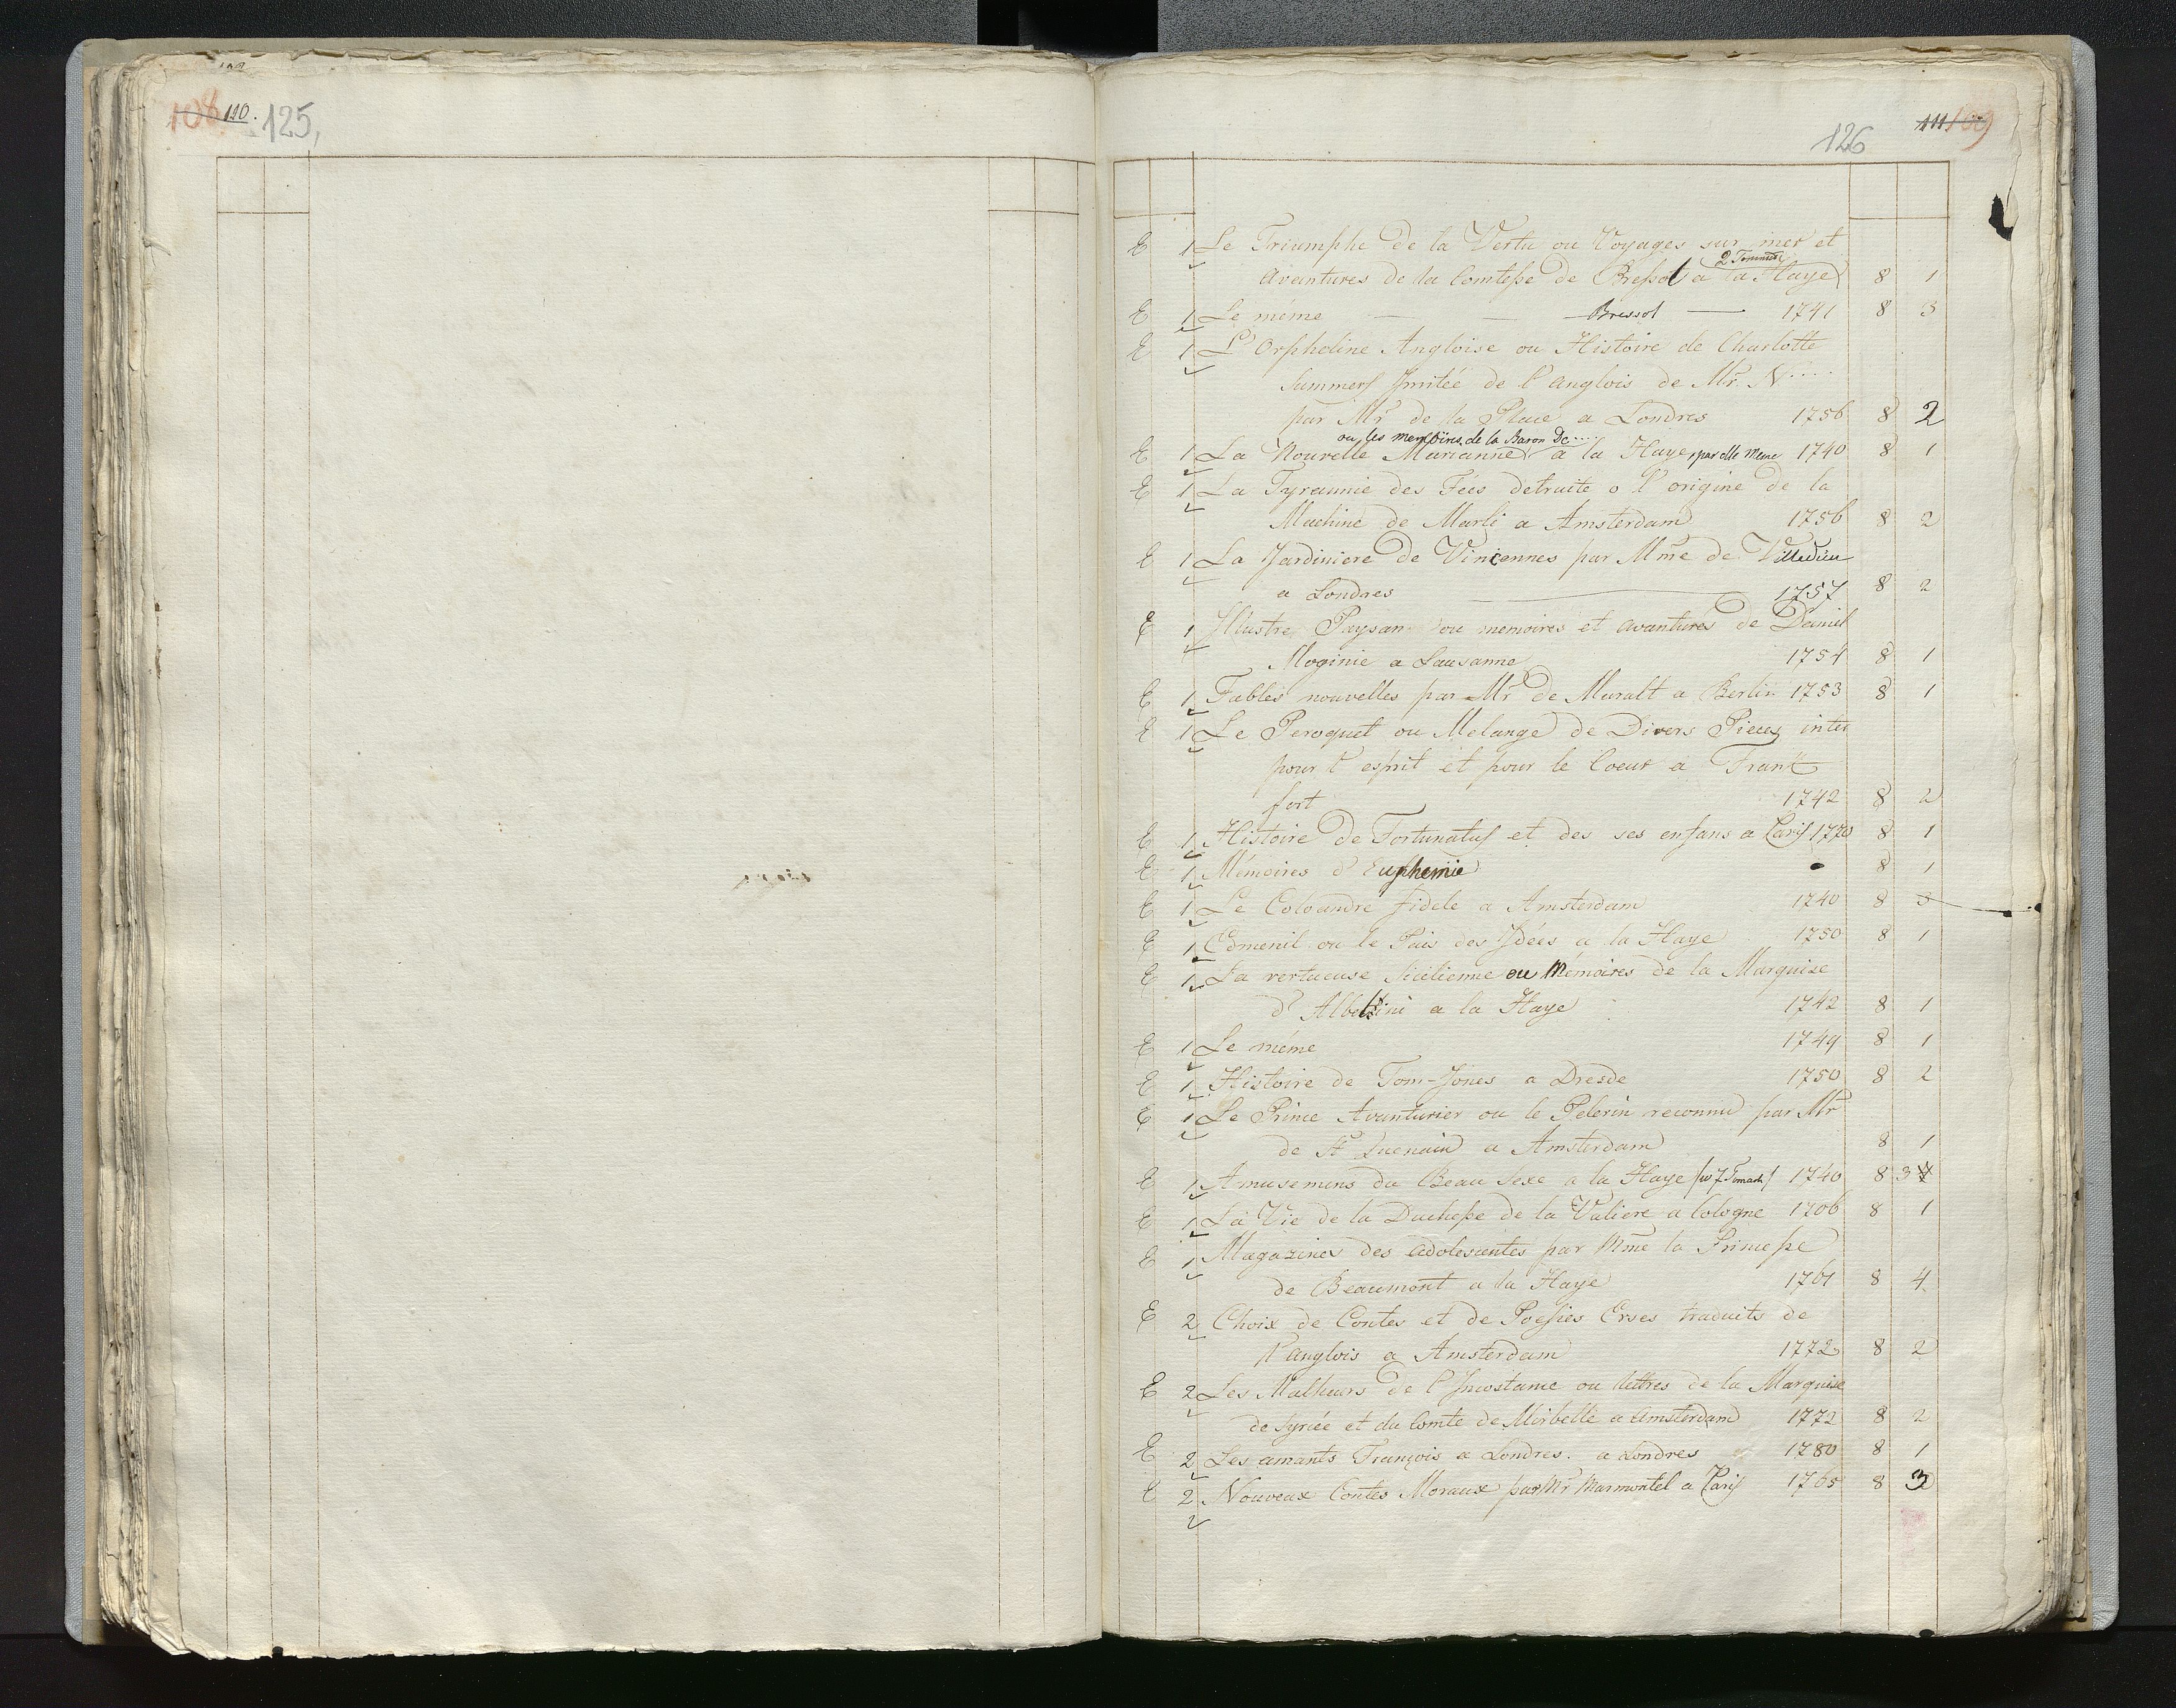 108 110. 125,
126 111 109
E 1 Le Triumphe de la Vertu ou Voyages sur mer et
2 Tommes
Avantures de la Comtesse de Bressol a la Haye 8 1
E 1 Le même — — Bressol — 1741 8 3
E 1 L'Orpheline Angloise ou Histoire de Charlotte
Summers Imitée de l'anglois de Mr. N....
par Mr de la Place a Londres 1756 8 2
ou les memoires de la Baron De....
E 1 La Nouvelle Marianne a la Haye, par elle meme 1740 8 1
E 1 La Tyrannie des Fées detruite o l'origine de la
Machine de Marli a Amsterdam 1756 8 2
E 1 La Jardiniere de Vincennes par Mme de Villedieu
a Londres 1757 8 2
E 1 Illustre Paysan ou memoires et avantures de Daniel
Moginie a Lausanne 1754 8 1
E 1 Fables nouvelles par Mr de Muralt a Berlin 1753 8 1
E 1 Le Peroquet ou Melange de Divers Pieces inter
pour l'esprit et pour le Coeur a Franc
fort 1742 8 2
E 1 Histoire de Fortunatus et des ses enfans a Paris 1770 8 1
E 1 Mémoires d'Euphemie 8 1
E 1 Le Coloandre fidele a Amsterdam 1740 8 3
E 1 Edmenil ou le Pais des Idées a la Haye 1750 8 1
E 1 La vertueuse Sicilienne ou Mémoires de la Marquise
d'Albelini a la Haye 1742 8 1
E 1 Le même 1749 8 1
E 1 Histoire de Tom-Jones a Dresde 1750 8 2
E 1 Le Prince Avanturier ou le Pelerin reconnu par Mr
de St Quenain a Amsterdam 8 1
E 1 Amusemens du Beau Sexe a la Haye 1740 8 3
E 1 La Vie de la Duchesse de la Valiere a Cologne 1706 8 1
E 1 Magazines des adolescentes par Mme la Princesse
de Beaumont a la Haye 1761 8 4
E 2 Choix de Contes et de Poesies Erses traduits de
l'anglois a Amsterdam 1772 8 2
E 2 Les Malheurs de l'Inconstance ou lettres de la Marquise
de Syrcé et du Comte de Mirbelle a Amsterdam 1772 8 2
E 2 Les amants François a Londres. a Londres 1780 8 1
E 2 Nouveaux Contes Moraux par Mr Marmontel a Paris 1765 8 3